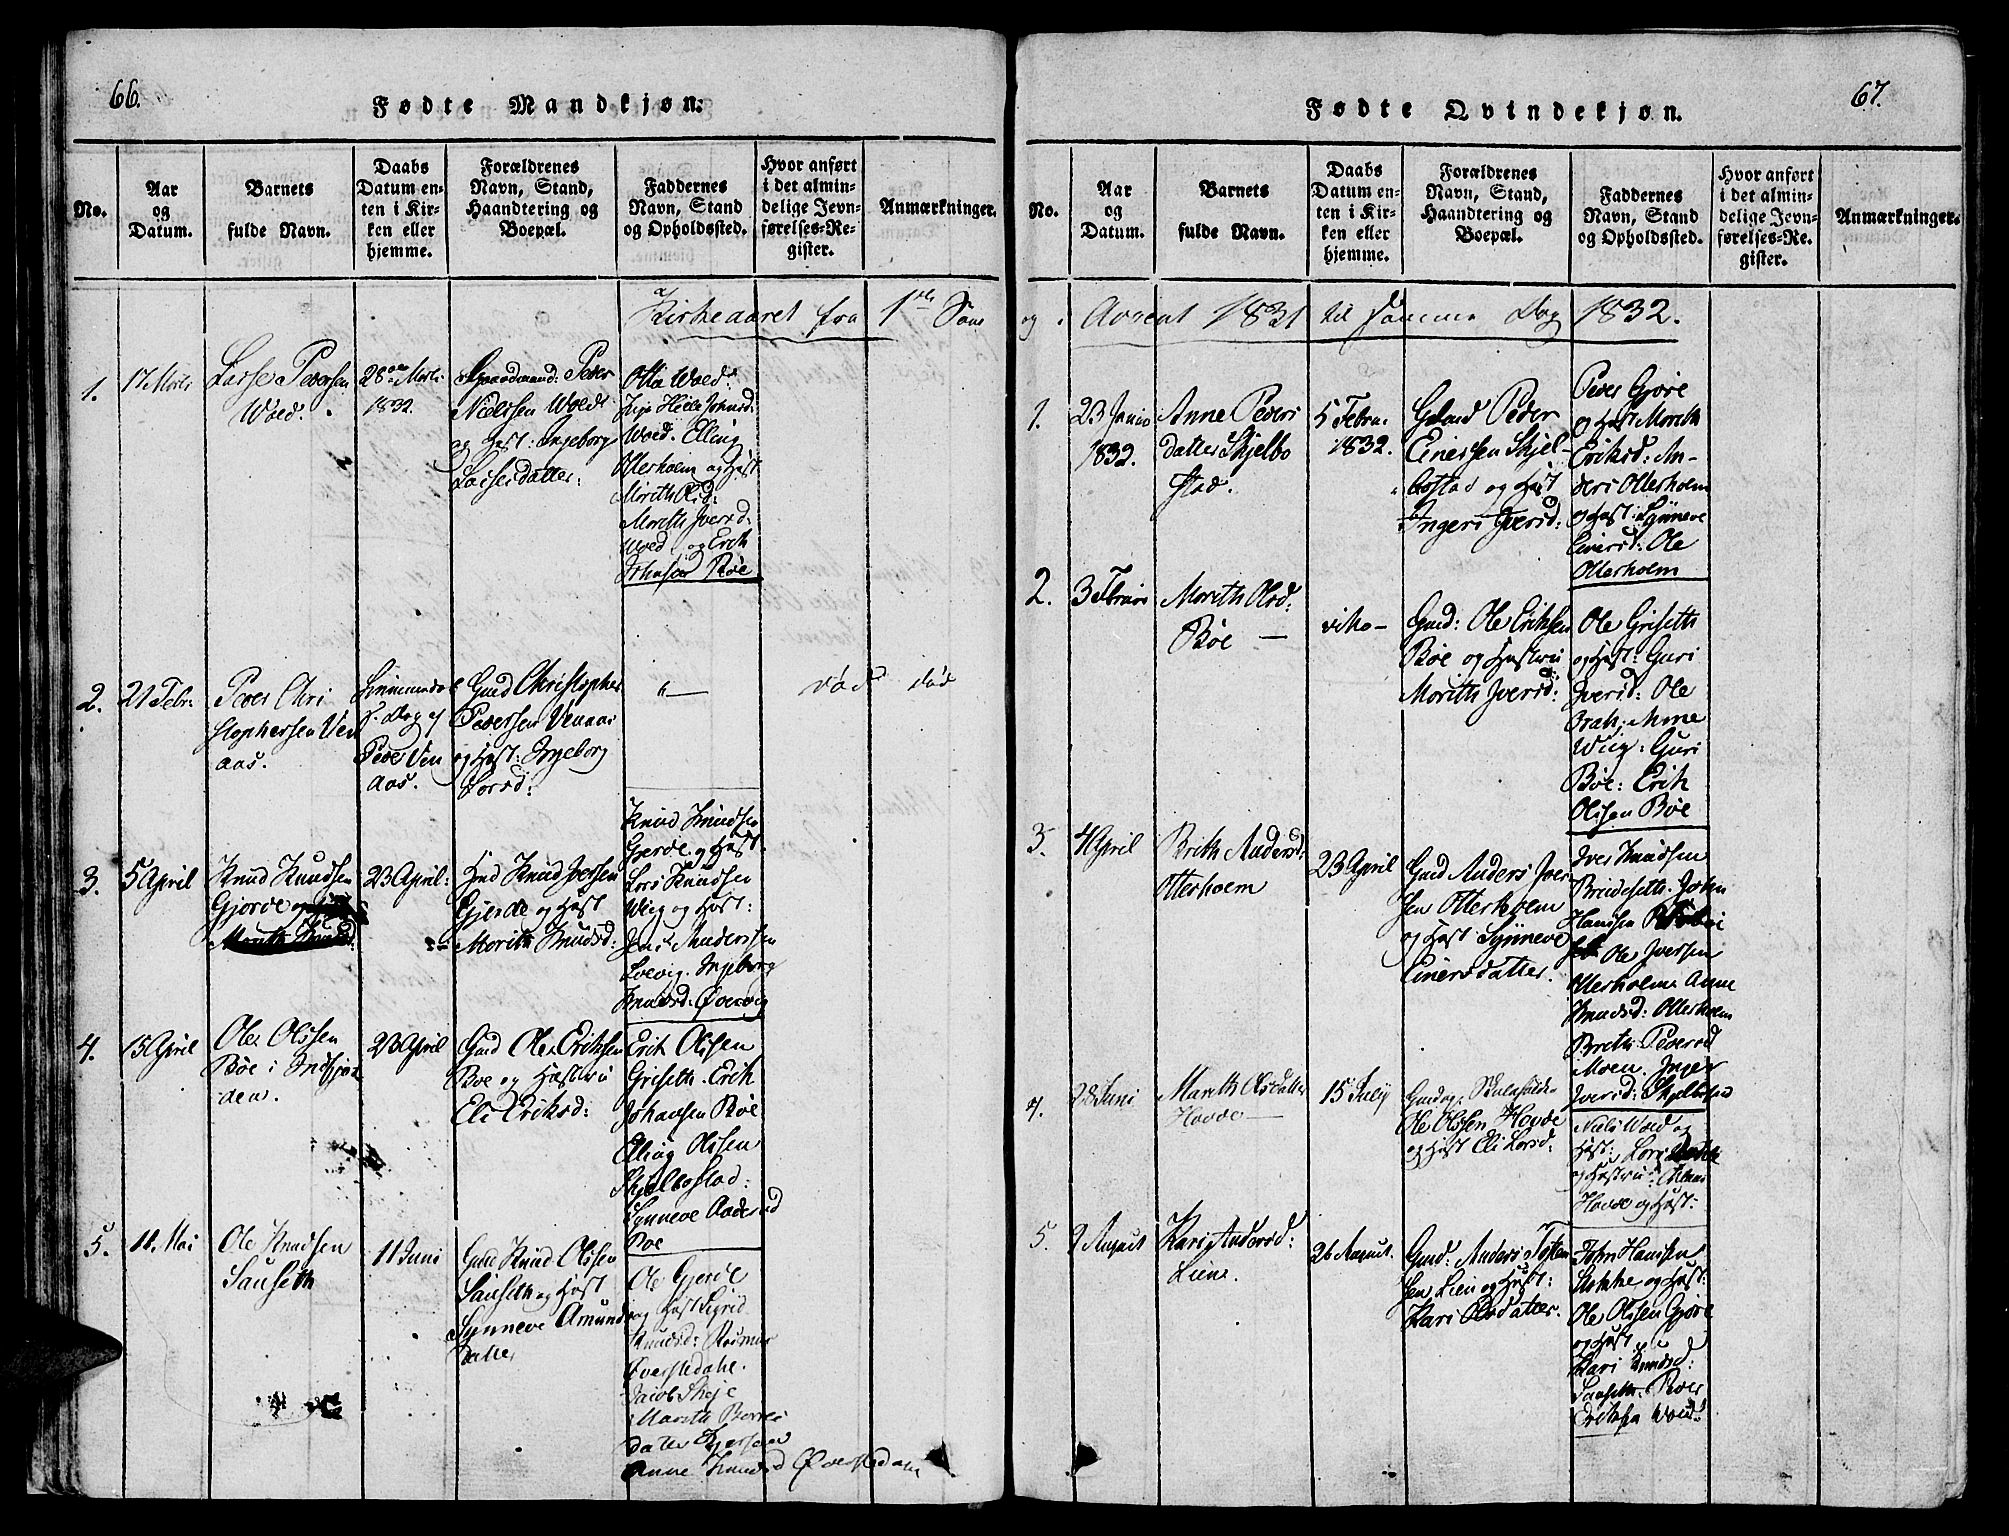 66.
Fødte Mandkjøn:
No.
Aar
og
Datum.
Barnets
fulde Navn.
Daabs
Datum en-
ten i Kir-
ken eller
hjemme.
Forældrenes
Navn, Stand,
Haandtering og
Boepæl.
Faddernes
Navn, Stand
og Opholdssted.
Hvor anført
i det almin-
delige Jevn-
førelses-Re-
gister.
Anmærkninger.
Kirkeaaret fra 1ste Sønd
1.
17 Marts
Lasse Pedersen
Woed.
28de Marts
1832.
Gaardmand: Peder
Nielssen Woed
og Hust: Ingeborg
Larsesdatter:
Otto Woed:
Woed: Elling
Otterholm og Hust
Marith Olsd:
Marith Iversd:
Woed og Erik
Johnsen Bøe
2.
21 Febr:
Peder Chri
stophersen Ven
aas.
Peder Ven
aas.
Gmd Christopher
Pedersen Venaas
og Hust: Ingeborg
Larsd:
død
3.
5 April
Knud Knudsen
Gjerde
23 April:
Gmd Knud Iversen
Gjerde og Hust
Marith Knudsd:
Knud Knudsen
Gjerde og Hust
Lars Knudsen
Wiig og Hust:
Jens Anderssen
Ingeborg
Knudsd:
4.
15 April
Ole Olssen
Bøe i Indfjor
den.
23 April
Gmd Ole Eriksen
Boe og Hustru
Eli Eriksd:
Erik Olssen
Griseth. Erik
Johansen Bøe
Elling Olssen
Skjelbostad:
Synneve
Boe
5.
11. Mai
Ole Knudsen
Sauseth
11 Juni
Gmd Knud Olssen
Sauseth og Hust
Synneve Amunds
datter
Ole Gjerde
og Hust Sigrid
Knudsd: Rasmus
Øverstedahl.
Jacob Skeje
Marith
datter
Anne Knudsd Øverstedahl
67.
Fødte Qvindekjøn.
No.
Aar
og
Datum.
Barnets
fulde Navn.
Daabs
Datum en-
ten i Kir-
ken eller
hjemme.
Forældrenes
Navn, Stand,
Haandtering og
Boepæl.
Faddernes
Navn, Stand
og Opholdssted.
Hvor anført
i det almin-
delige Jevn-
førelses-Re-
gister.
Anmærkninger.
og i Advent 1831 til samme Dag 1832.
1.
23 Januar
1832.
Anne Peders
datter Skjelbo
stad.
5 Febru.
1832.
Gmd Peder
Einersen Skjel
bostad og Hust
Ingeri Iversd:
Peder Gjøre
og Hust Marith
Eriksd: An-
ders Otterholm
og Hust: Synneve
Einersd: Ole
Otterholm
2.
3 Februar
Marith Olsd:
Bøe
dito
Gmd: Ole Eriksen
Bøe og Hustru
Marith Iversd:
Ole Griseth
og Hust: Guri
Iversd: Ole
Anne
Wiig: Guri
Bøe: Erik
Olssen Bøe
3.
4 April
Brith Andersd:
Otterholm
23 April
Gmd Anders Iver
sen Otterholm
og Hust Synneve
Einersdatter.
Iver Knudsen
Bredeseth. John
Hansen
Ole Iversen
Otterholm Anne
Knudsd: Otterholm
Breth Pedersd
Moen. Inger
Iversd: Skjelbostad
4.
28 Juni
Marith Olsdatter
Hovde
15 July
Ole Olssen Hovde
og Hust Eli Larsd:
Niels Woed og
Hust: Lars
og Hustru:
Hovde og Hust:
5.
9 August
Kari Andersd:
Liene.
26 August.
Gmd: Anders
sen Lien og Hust:
Kari Olsdatter.
John Hansen
Stokke og Hust:
Ole Olssen Gjøre
og Hust
Kari Knudsd:
Sauseth: Peder
Eriksen Woed: